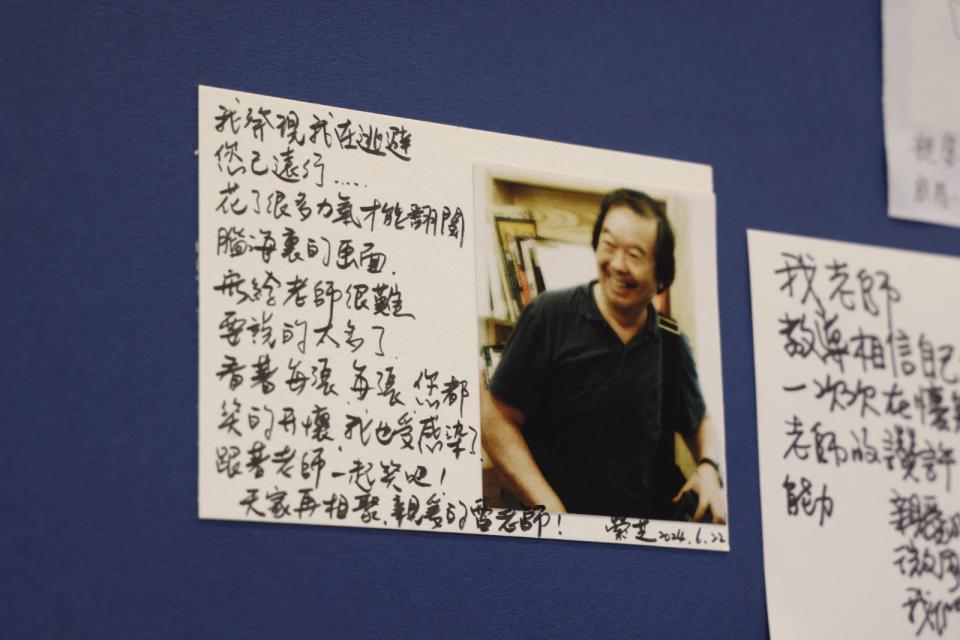 我發現我在逃避
您已遠行.....
花了很多力氣才能翻閱
腦海裏的画面.
寫給老師很難
要說的太多了
看著每張每張,您都
笑的开懷,我也受感染了
跟著老師一起笑吧!
天家再相聚,親愛的雷老師!
榮芝 2024.6.22
我老師
教導相信自己
一次次在懷疑
老師的讚許
能力
親愛的
我們